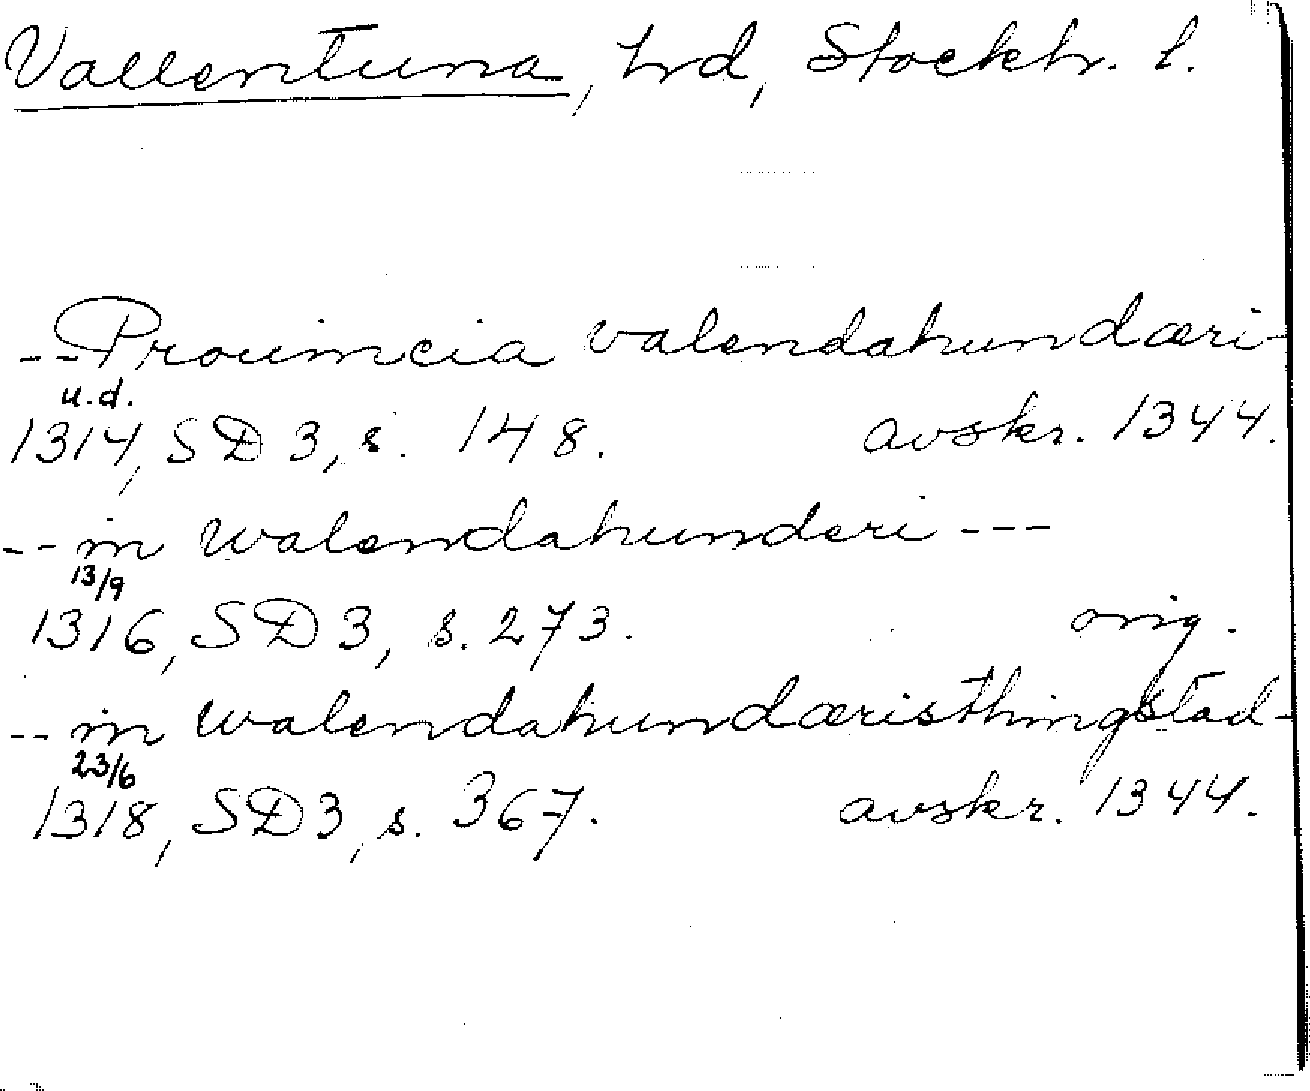 Vallentuna, hrd, Stockh. l.
--Prouincia valendahundæri-
u.d.
1314, SD 3, s. 148. avskr. 1344.
--in walendahunderi---
13/9
1316, SD 3, s. 273. orig.
--in walendahundæristhingstad-
23/6
1318, SD 3, s. 367. avskr. 1344.